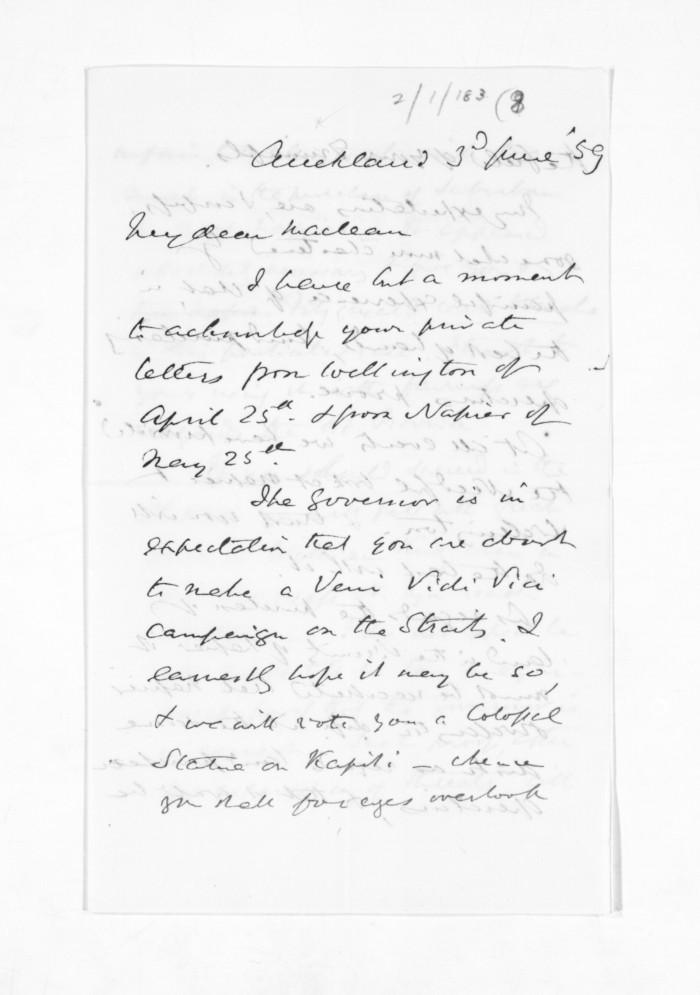 2/1/183 (8
Auckland 3d June '59
My dear Maclean
I have but a moment
to acknowledge your private
letters from Wellington of
April 25th. & from Napier of
May 25th.
The Governor is in
expectation that you are about
to make a Veni Vidi Vici
campaign on the Straits. I
earnestly hope it may be so,
& we will vote you a Colossal
Statue on Kapiti – whence
you shall for ages overlook